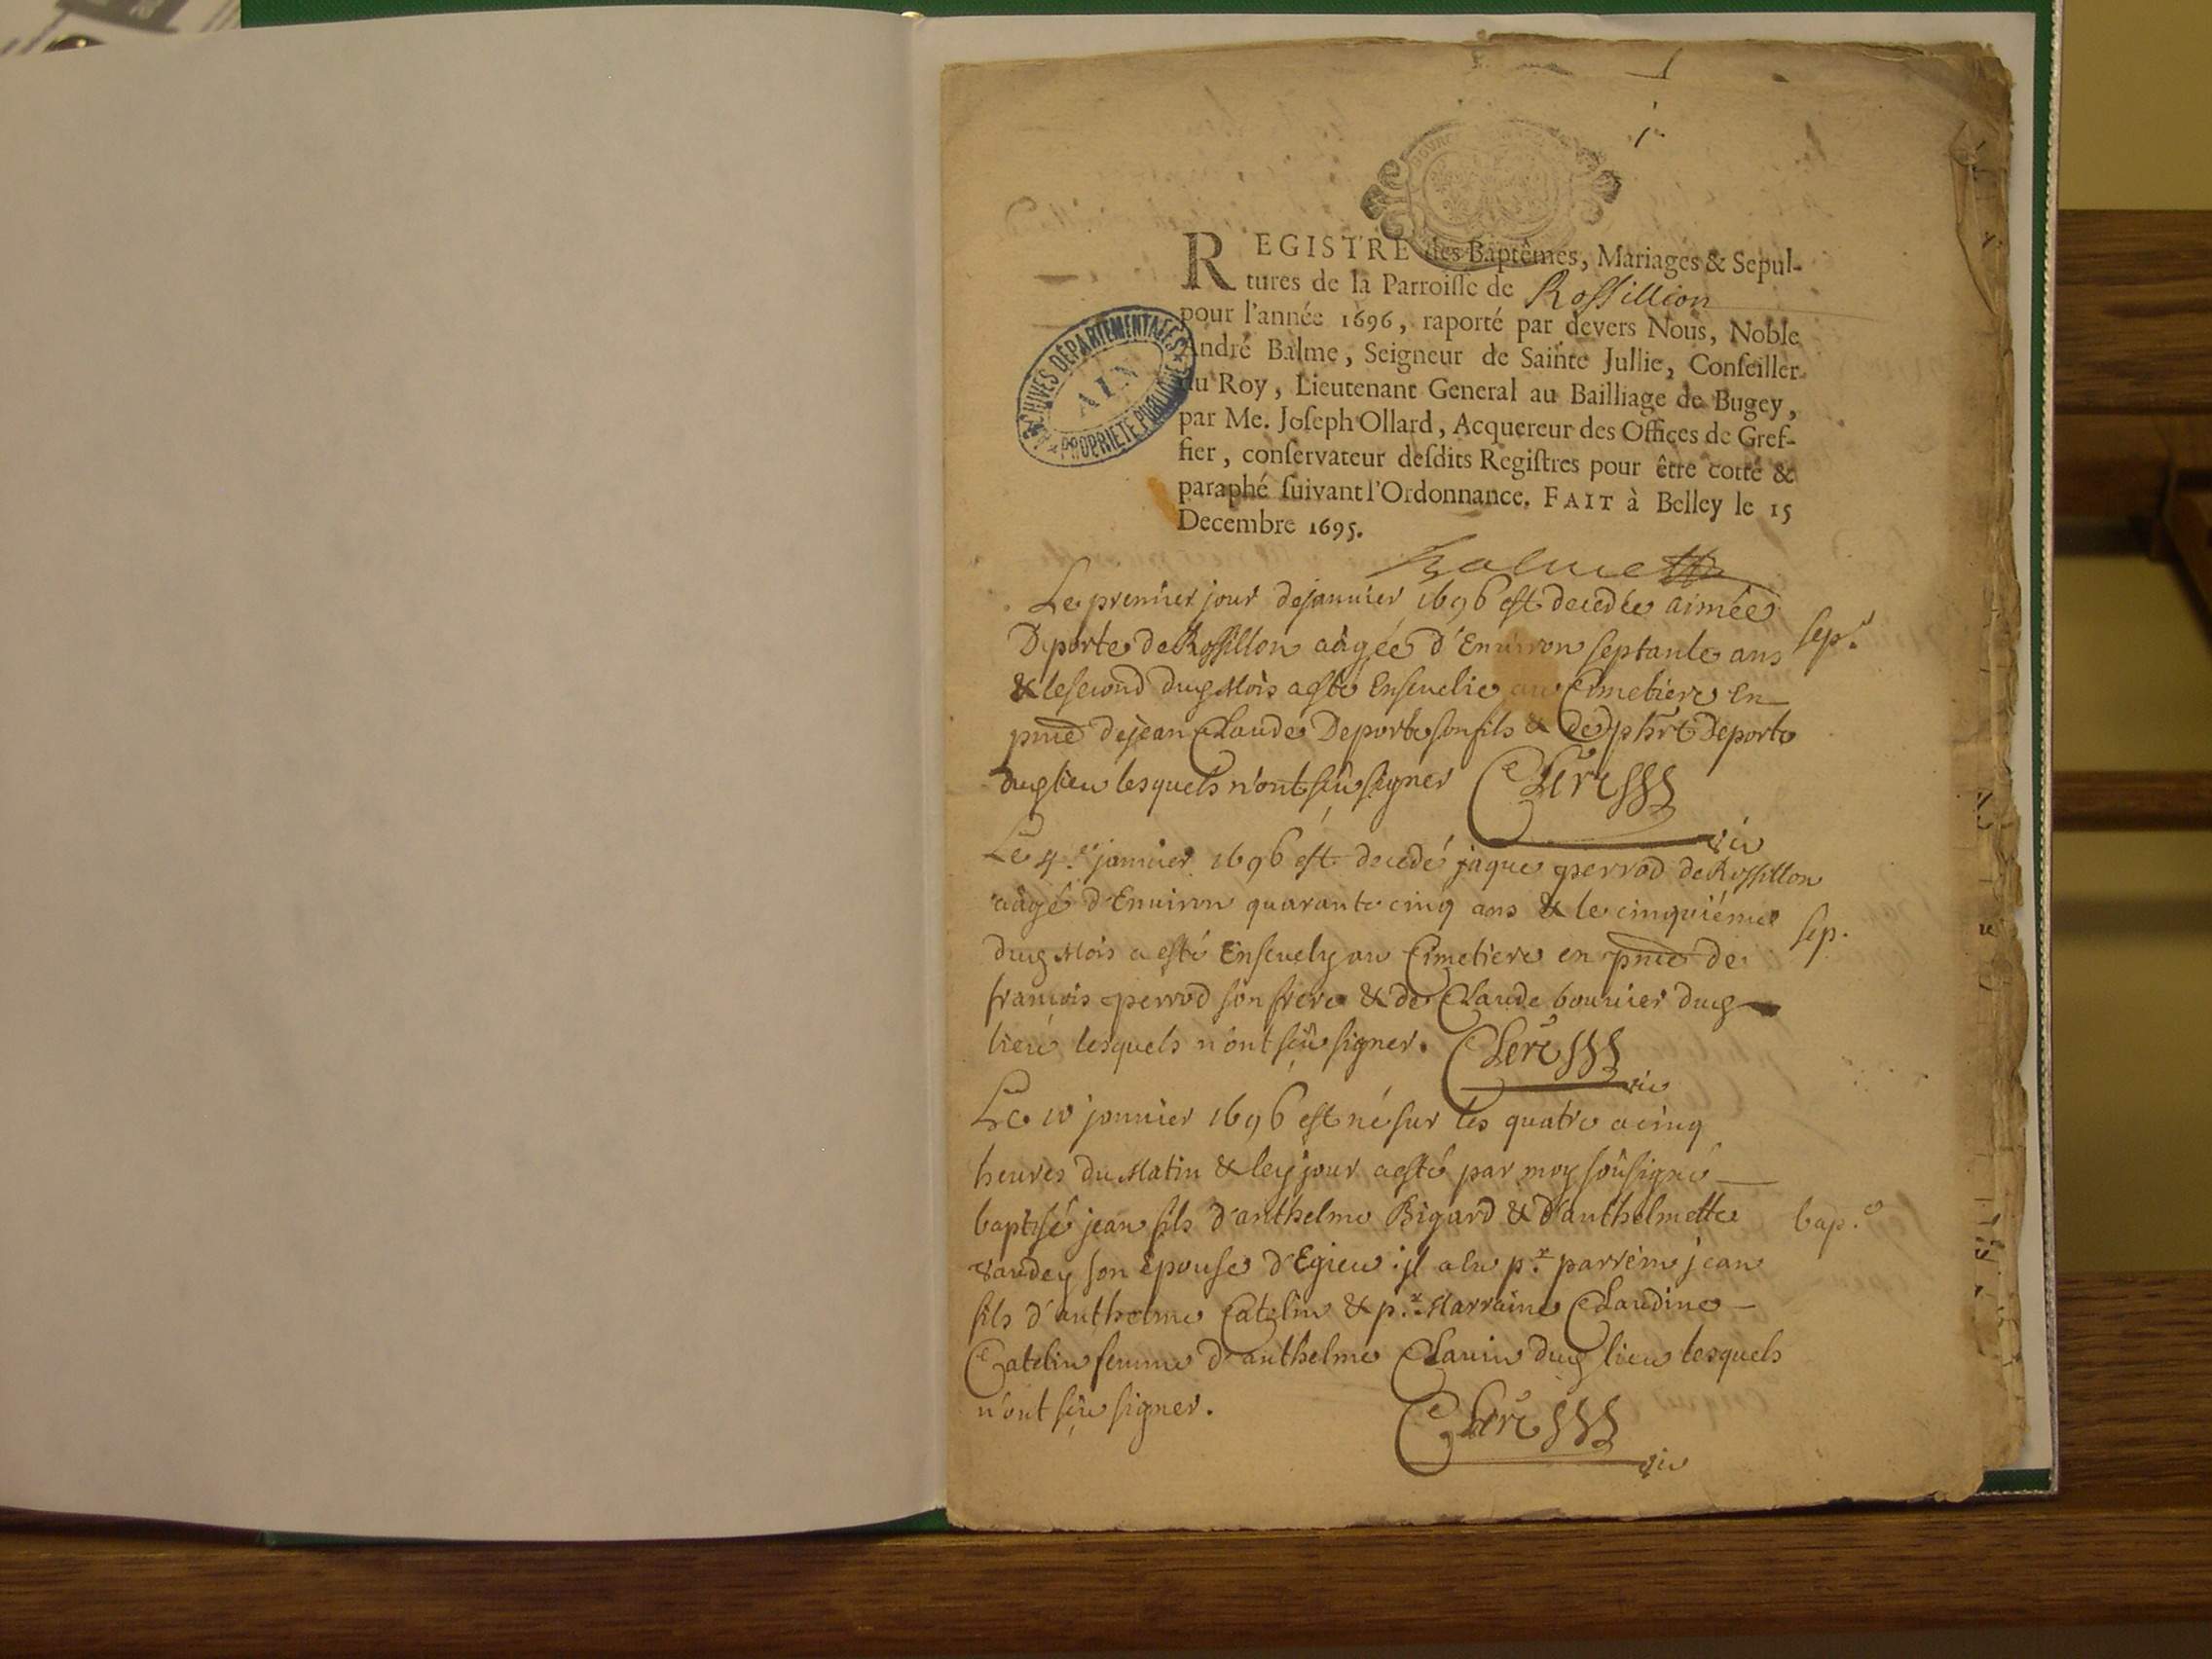 1
1
REGISTRE des Baptêmes, Mariages & Sepul-
tures de la Parroisse de Rossillion
pour l'année 1696, raporté par devers Nous, Noble
André Balme, Seigneur de Sainte Jullie, Conseiller
du Roy, Lieutenant General au Bailliage de Bugey,
par Me. Joseph Ollard, Acquereur des Offices de Gref-
fier, conservateur desdits Registres pour être cotté &
paraphé suivant l'Ordonnance. FAIT à Belley le 15
Decembre 1695.
ARCHIVES DÉPARTEMENTALES
AIN
PROPRIÉTÉ PUBLIQUE
Balme
Le premier jour de januier 1696 est decedée aimée
Deporte de Rossillon aâgée d'Enuiron septante ans
sep.
& le second dud mois a esté Enseuelie au Cimetiere en
pnce de jean Claude Deporte son fils & de Deporte
dud lieu lesquels n'ont sçeu signer Clerc
vic
Le 4e januier 1696 est decedé jaque perrod de Rossillon
aâgé d'Enuiron quarante cinq ans & le cinquiéme
sep.
dud Mois a esté Enseuely au Cimetiere en pnce de
francois perrod son frere & de Claude bouuier dud
lieu lesquels n'ont sçeu signer. Clerc
vic
Le 10 januier 1696 est né sur les quatre a cinq
heures du Matin & led jour a esté par moy soûsigné
baptisé jean fils d'anthelme Bigard & d'anthelmette
bap.e
son épouse d'Egieu il a eu pr parrein jean
fils d'anthelme Catelin & pr Marraine Claudine
Catelin femme d'anthelme dud lieu lesquels
n'ont sçeu signer.
Clerc
vic